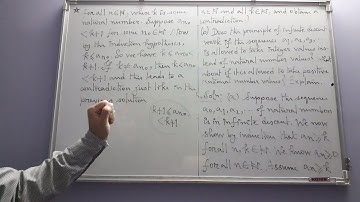 * for all n∈ℕ, where k is some
natural number. Suppose an₀
< k+1 for some n₀∈ℕ. Now
by the induction hypothesis,
k ≤ an₀. So we have k ≤ an₀
< k+1. If k ≠ an₀, then k < an₀
< k+1 and this leads to a
contradiction just like in the
previous solution
k+1 ≤ an₀
< k+1
n∈ℕ and all k∈ℕ, and obtain a
contradiction.]
Does the principle of infinite descent
work if the sequence a₁, a₂, a₃,
is allowed to take integer values ins
tead of natural number values? What
about if it is allowed to take positive
rational number values? Explain.
Soln: Suppose the sequence
a₁, a₂, a₃, ... of natural numbers
is in infinite descent. We now
show by induction that an ≥ k
for all n, k∈ℕ. We know an ≥ 0
for all n∈ℕ. Assume an ≥ k